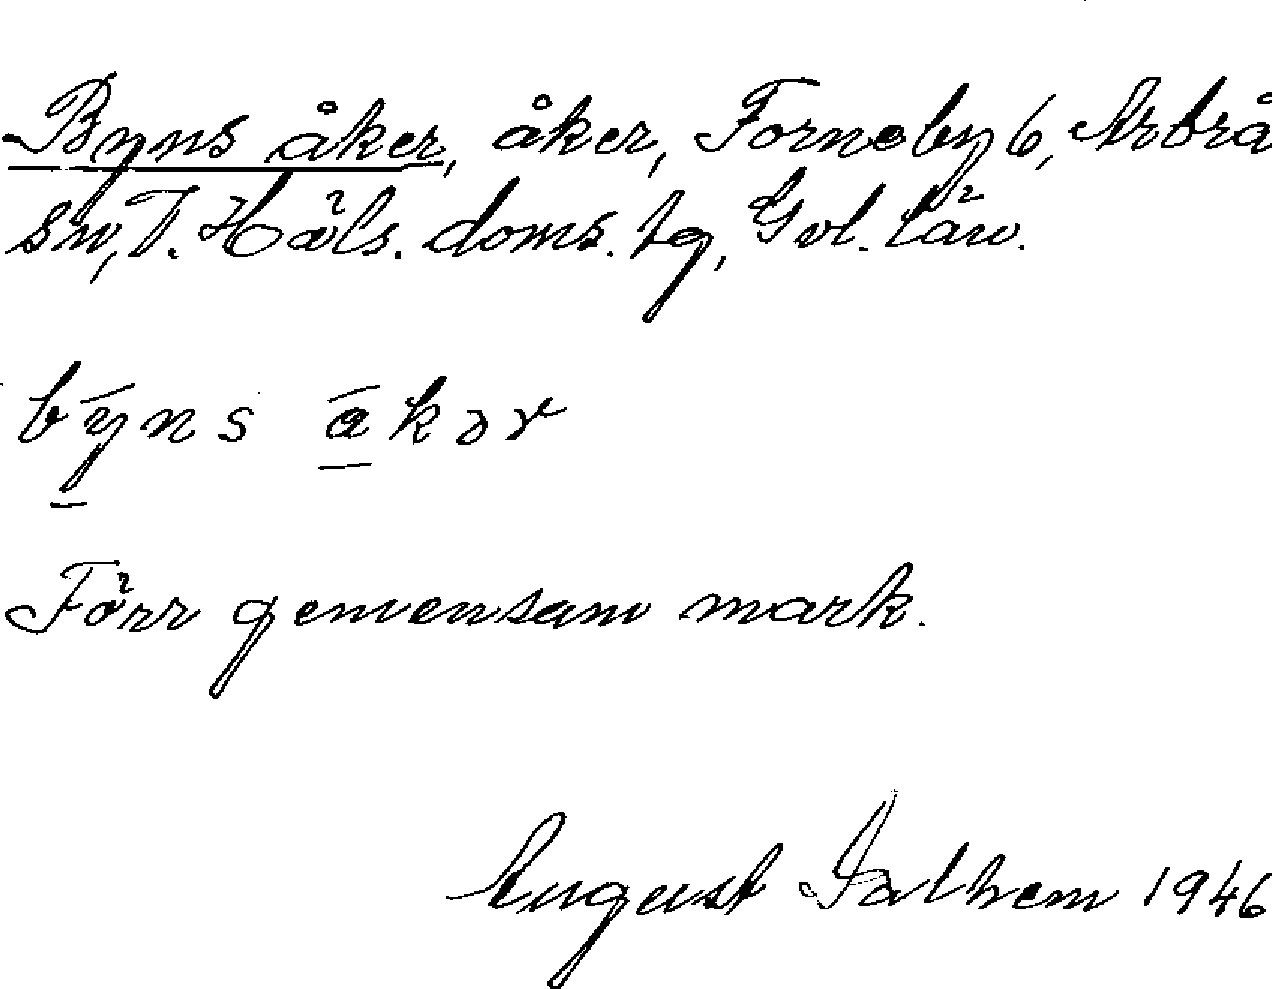 Byns åker, åker, Forneby 6, Arbrå
sn, V. Häls. doms. tg, Gvl. län.
bȳns a̱̅kər
Förr gemensam mark.
August Dalhem 1946